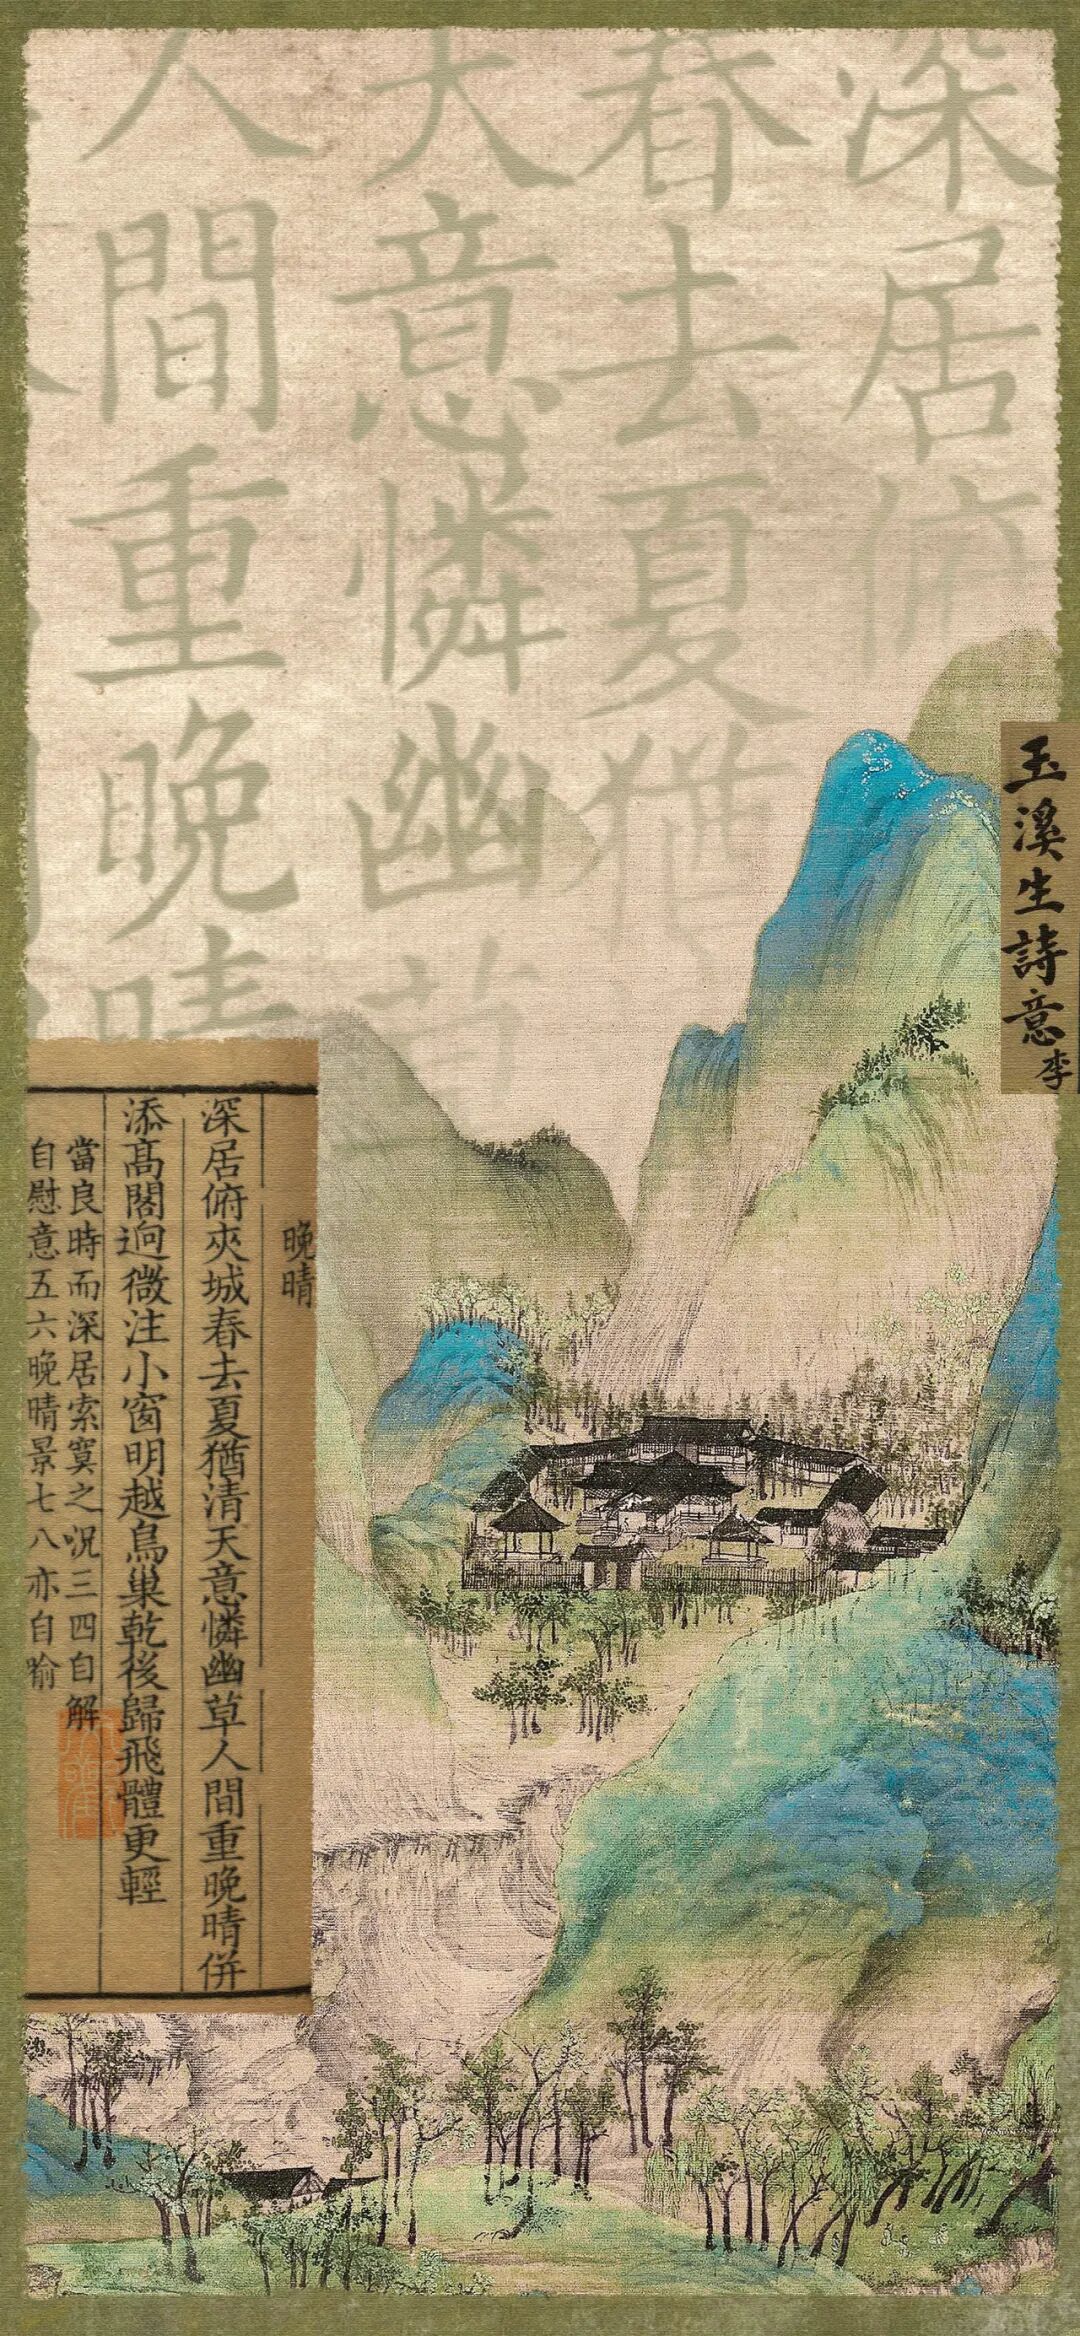 深居俯
春去夏猶
天意憐幽草
人間重晚晴
玉溪生詩意
李
晚晴
深居俯夾城春去夏猶清天意憐幽草人間重晚晴併
添高閣逈微注小窗明越鳥巢乾後歸飛體更輕
當良時而深居索寞之况三四自解
自慰意五六晚晴景七八亦自喻